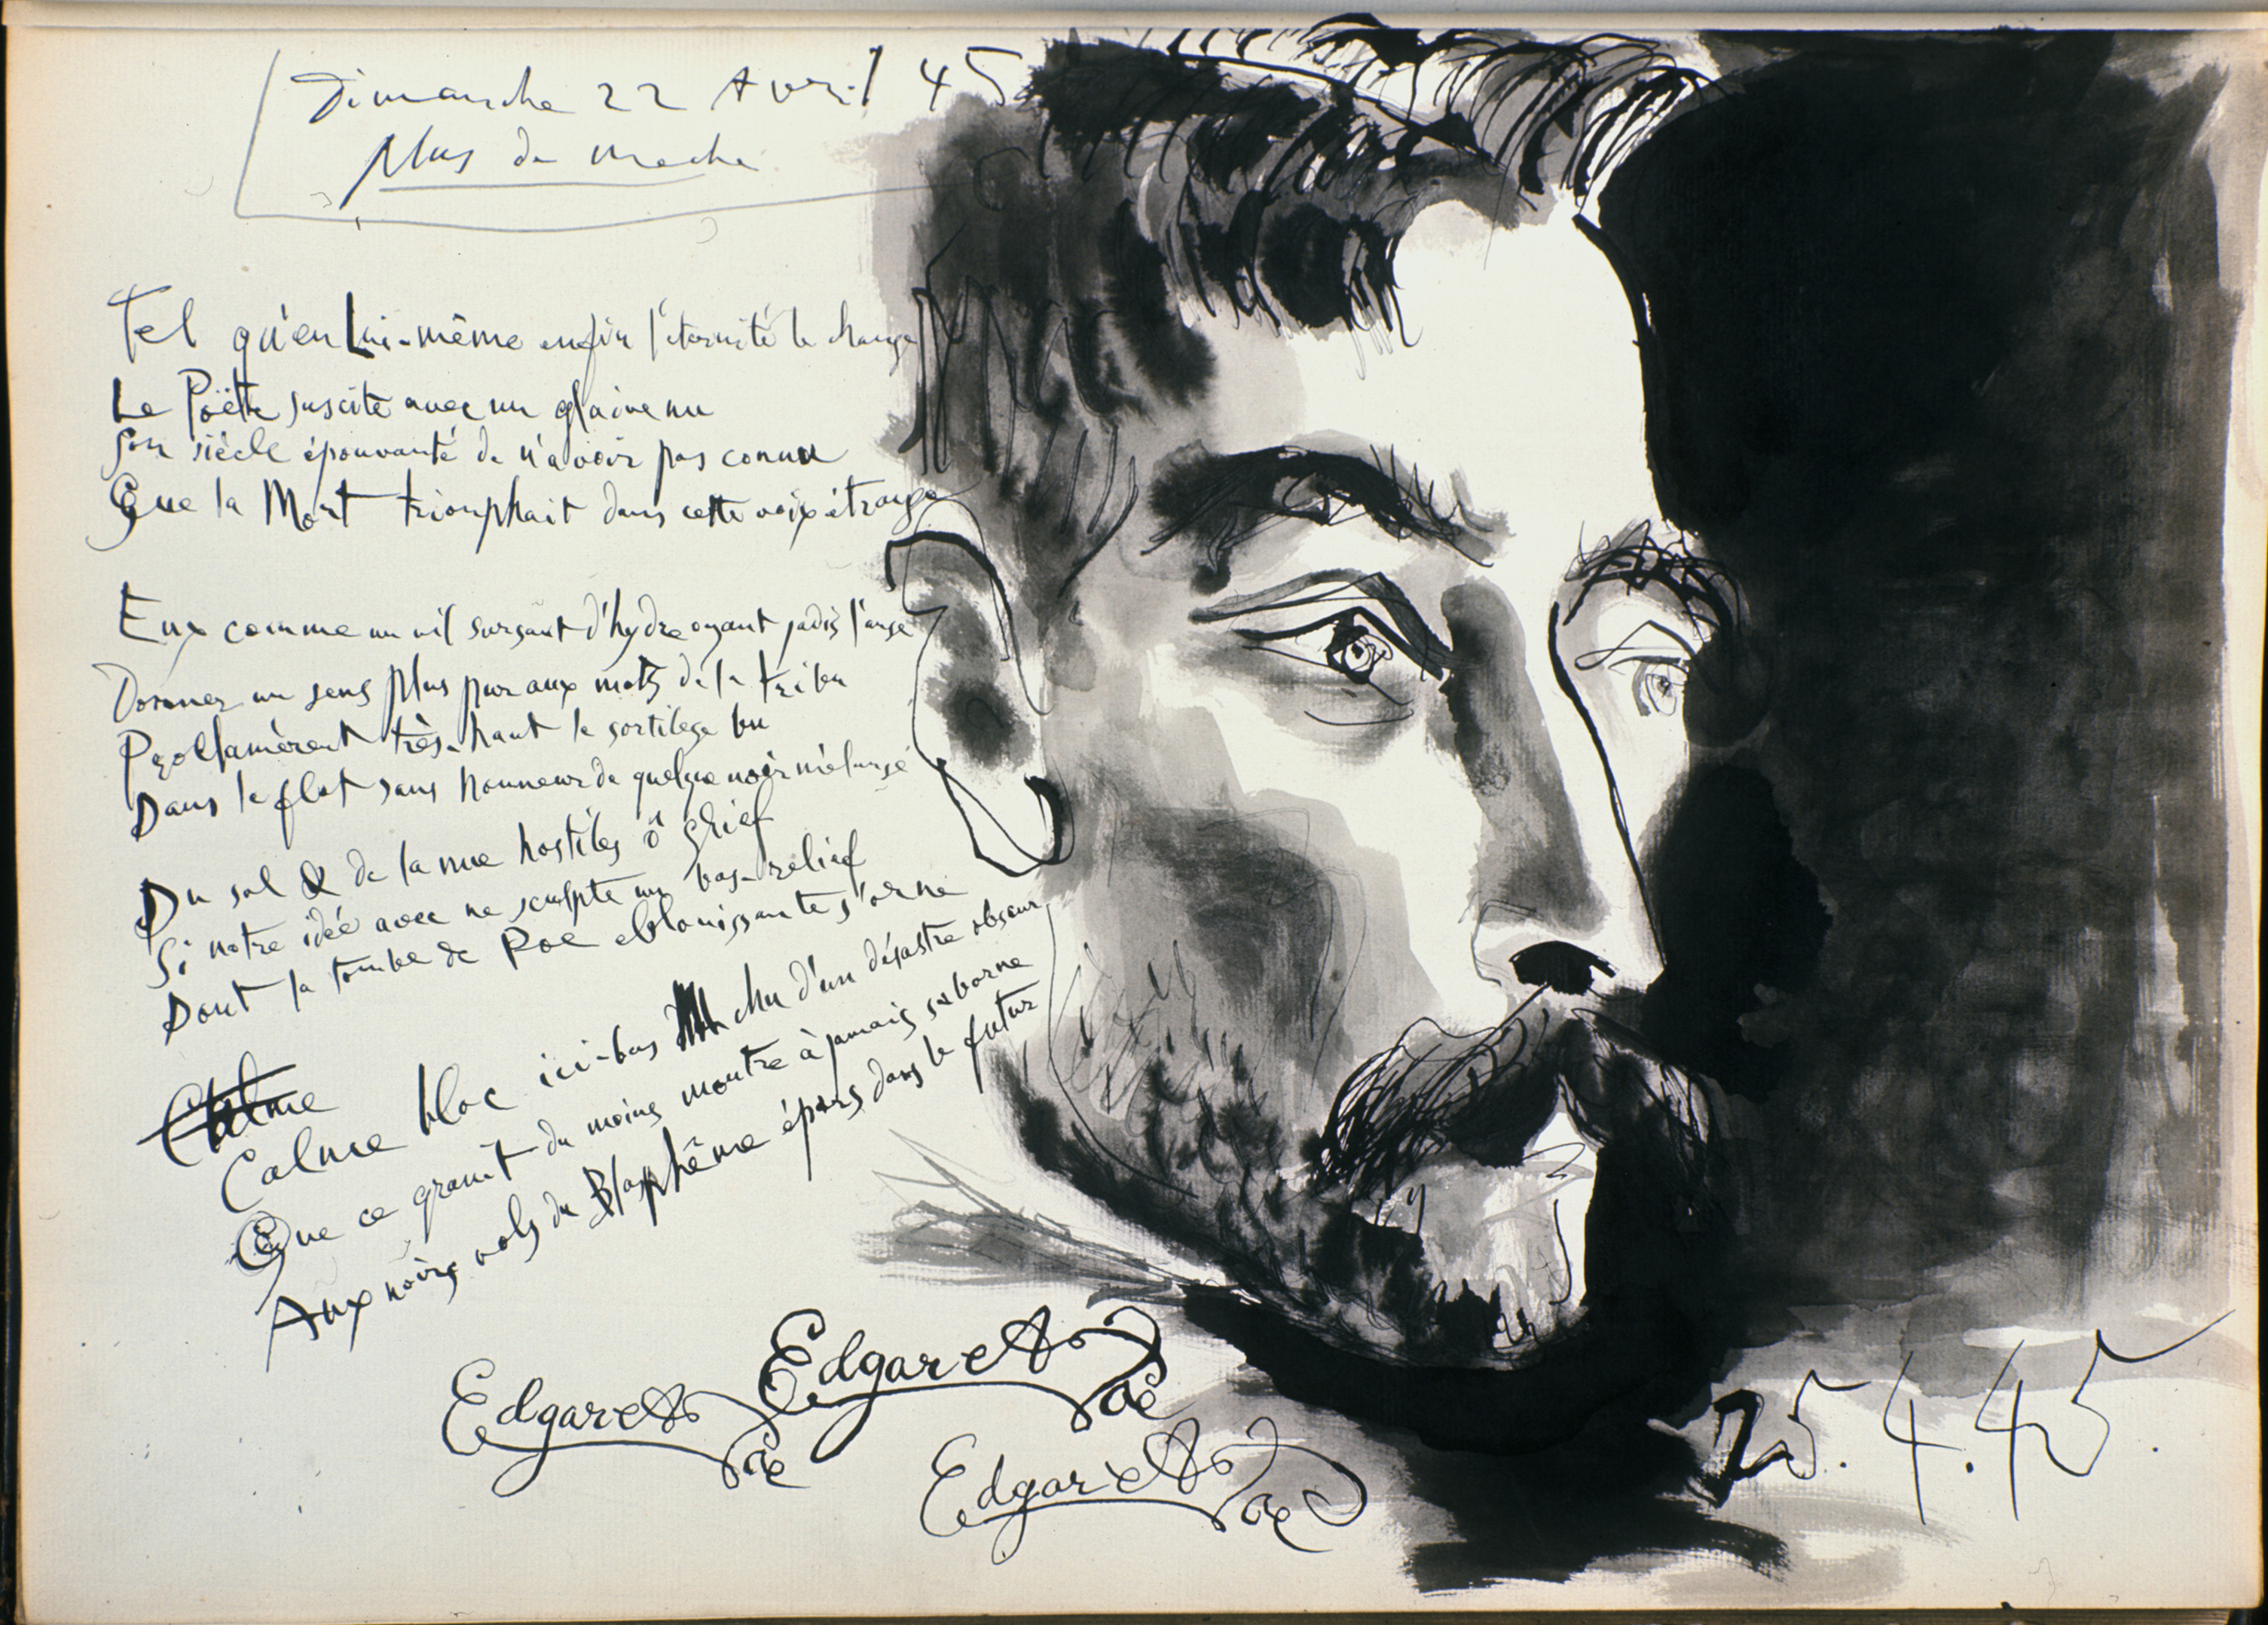 Dimanche 22 Avril 45
Plus de
Tel qu'en Lui-même enfin l'éternité le change
Le Poëte suscite avec un glaive nu
Son siècle épouvanté de n'avoir pas connu
Que la Mort triomphait dans cette voix étrange
Eux comme un vil sursaut d'hydre oyant jadis l'ange
Donner un sens plus pur aux mots de la tribu
Proclamèrent très-haut le sortilège bu
Dans le flot sans honneur de quelque noir mélange
Du sol & de la nue hostiles ô grief
Si notre idée avec ne sculpte un bas-relief
Dont la tombe de Poe eblouissante s'orne
Calme
Calme bloc ici-bas chu d'un désastre obscur
Que ce granit du moins montre à jamais sa borne
Aux noirs vols du Blasphème épars dans le futur
Edgar A Poe
Edgar A Poe
Edgar A Poe
25.4.45.